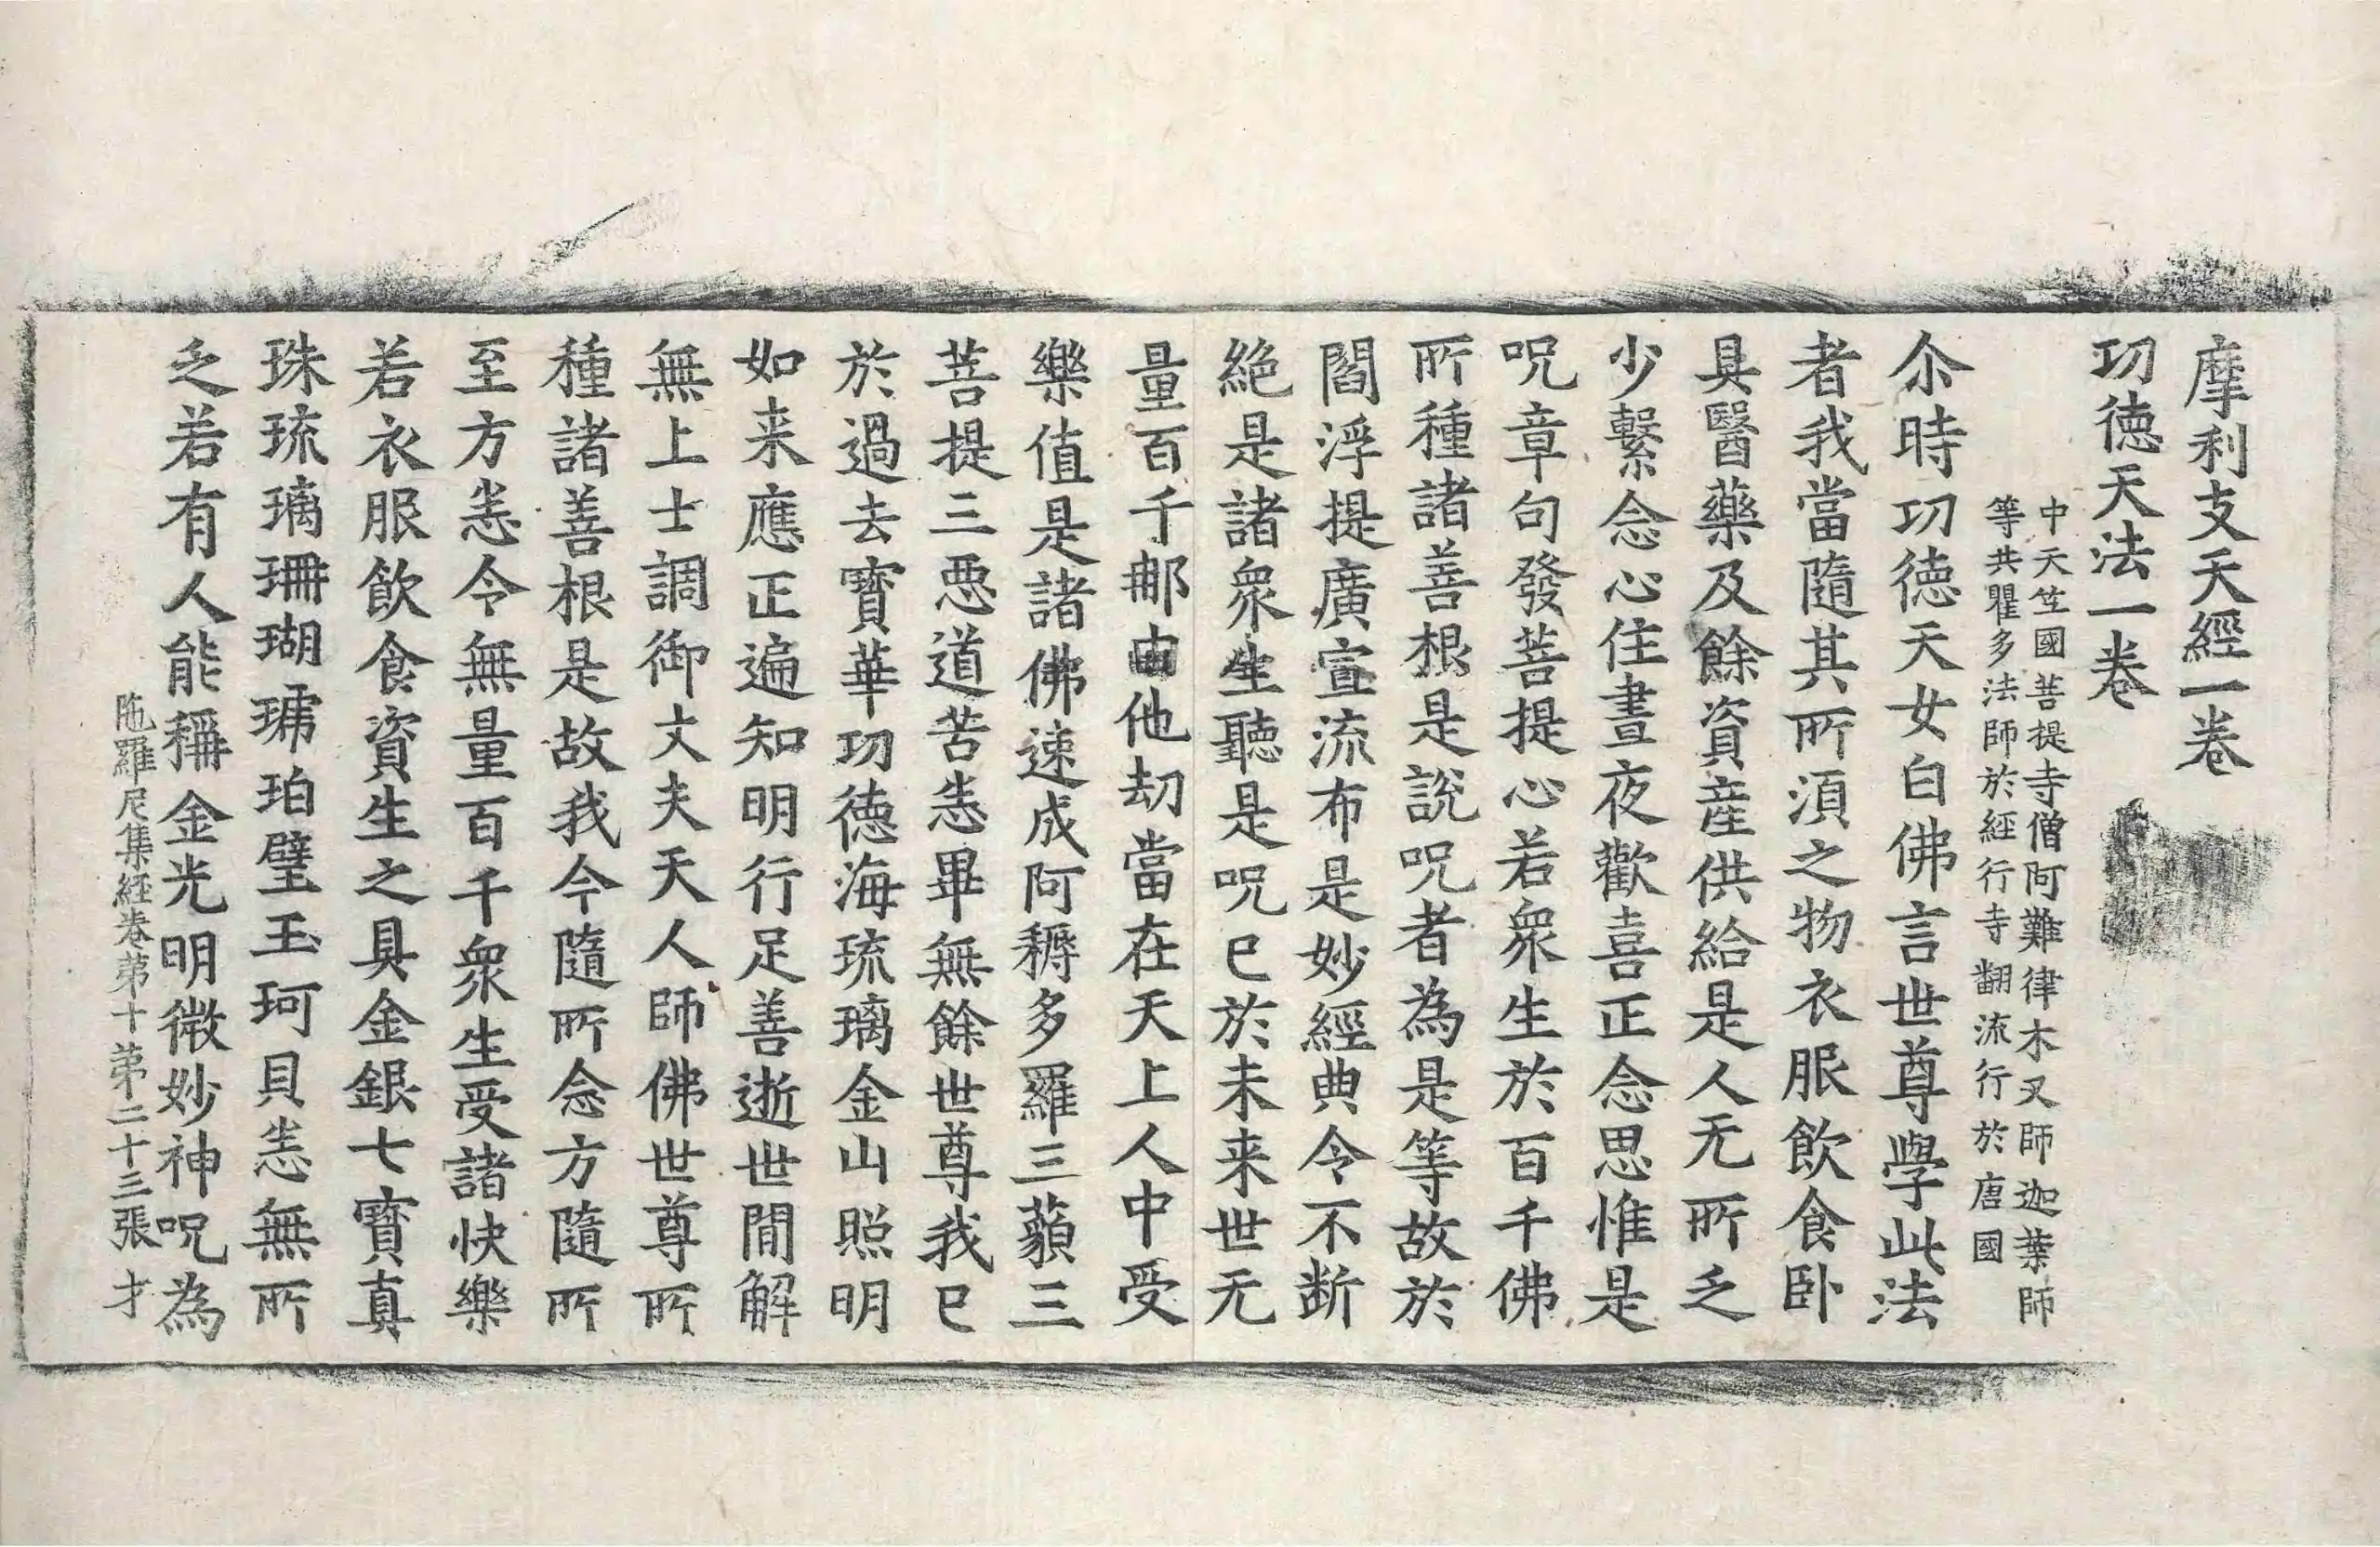 摩利支天經一卷
功徳天法一卷
中天竺國菩提寺僧阿難律木叉師迦葉師
等共瞿多法師於經行寺翻流行於唐國
尒時功徳天女白佛言世尊學此法
者我當隨其所湏之物衣服飲食卧
具醫藥及餘資産供給是人无所乏
少繫念心住晝夜歡喜正念思惟是
呪章句發菩提心若衆生於百千佛
所種諸善根是說呪者為是等故於
閻浮提廣宣流布是妙經典令不断
絶是諸衆生聽是呪已於未来世无
量百千那由他劫當在天上人中受
樂值是諸佛速成阿耨多羅三藐三
菩提三惡道苦恙畢無餘世尊我已
於過去寳華功徳海琉璃金山照明
如来應正遍知明行足善逝世間解
無上士調御丈夫天人師佛世尊所
種諸善根是故我今隨所念方隨所
至方恙令無量百千衆生受諸快樂
若衣服飲食資生之具金銀七寳真
珠琉璃珊瑚琥珀璧玉珂貝恙無所
乏若有人能稱金光明微妙神呪為
陁羅尼集經卷苐十苐二十三張 才